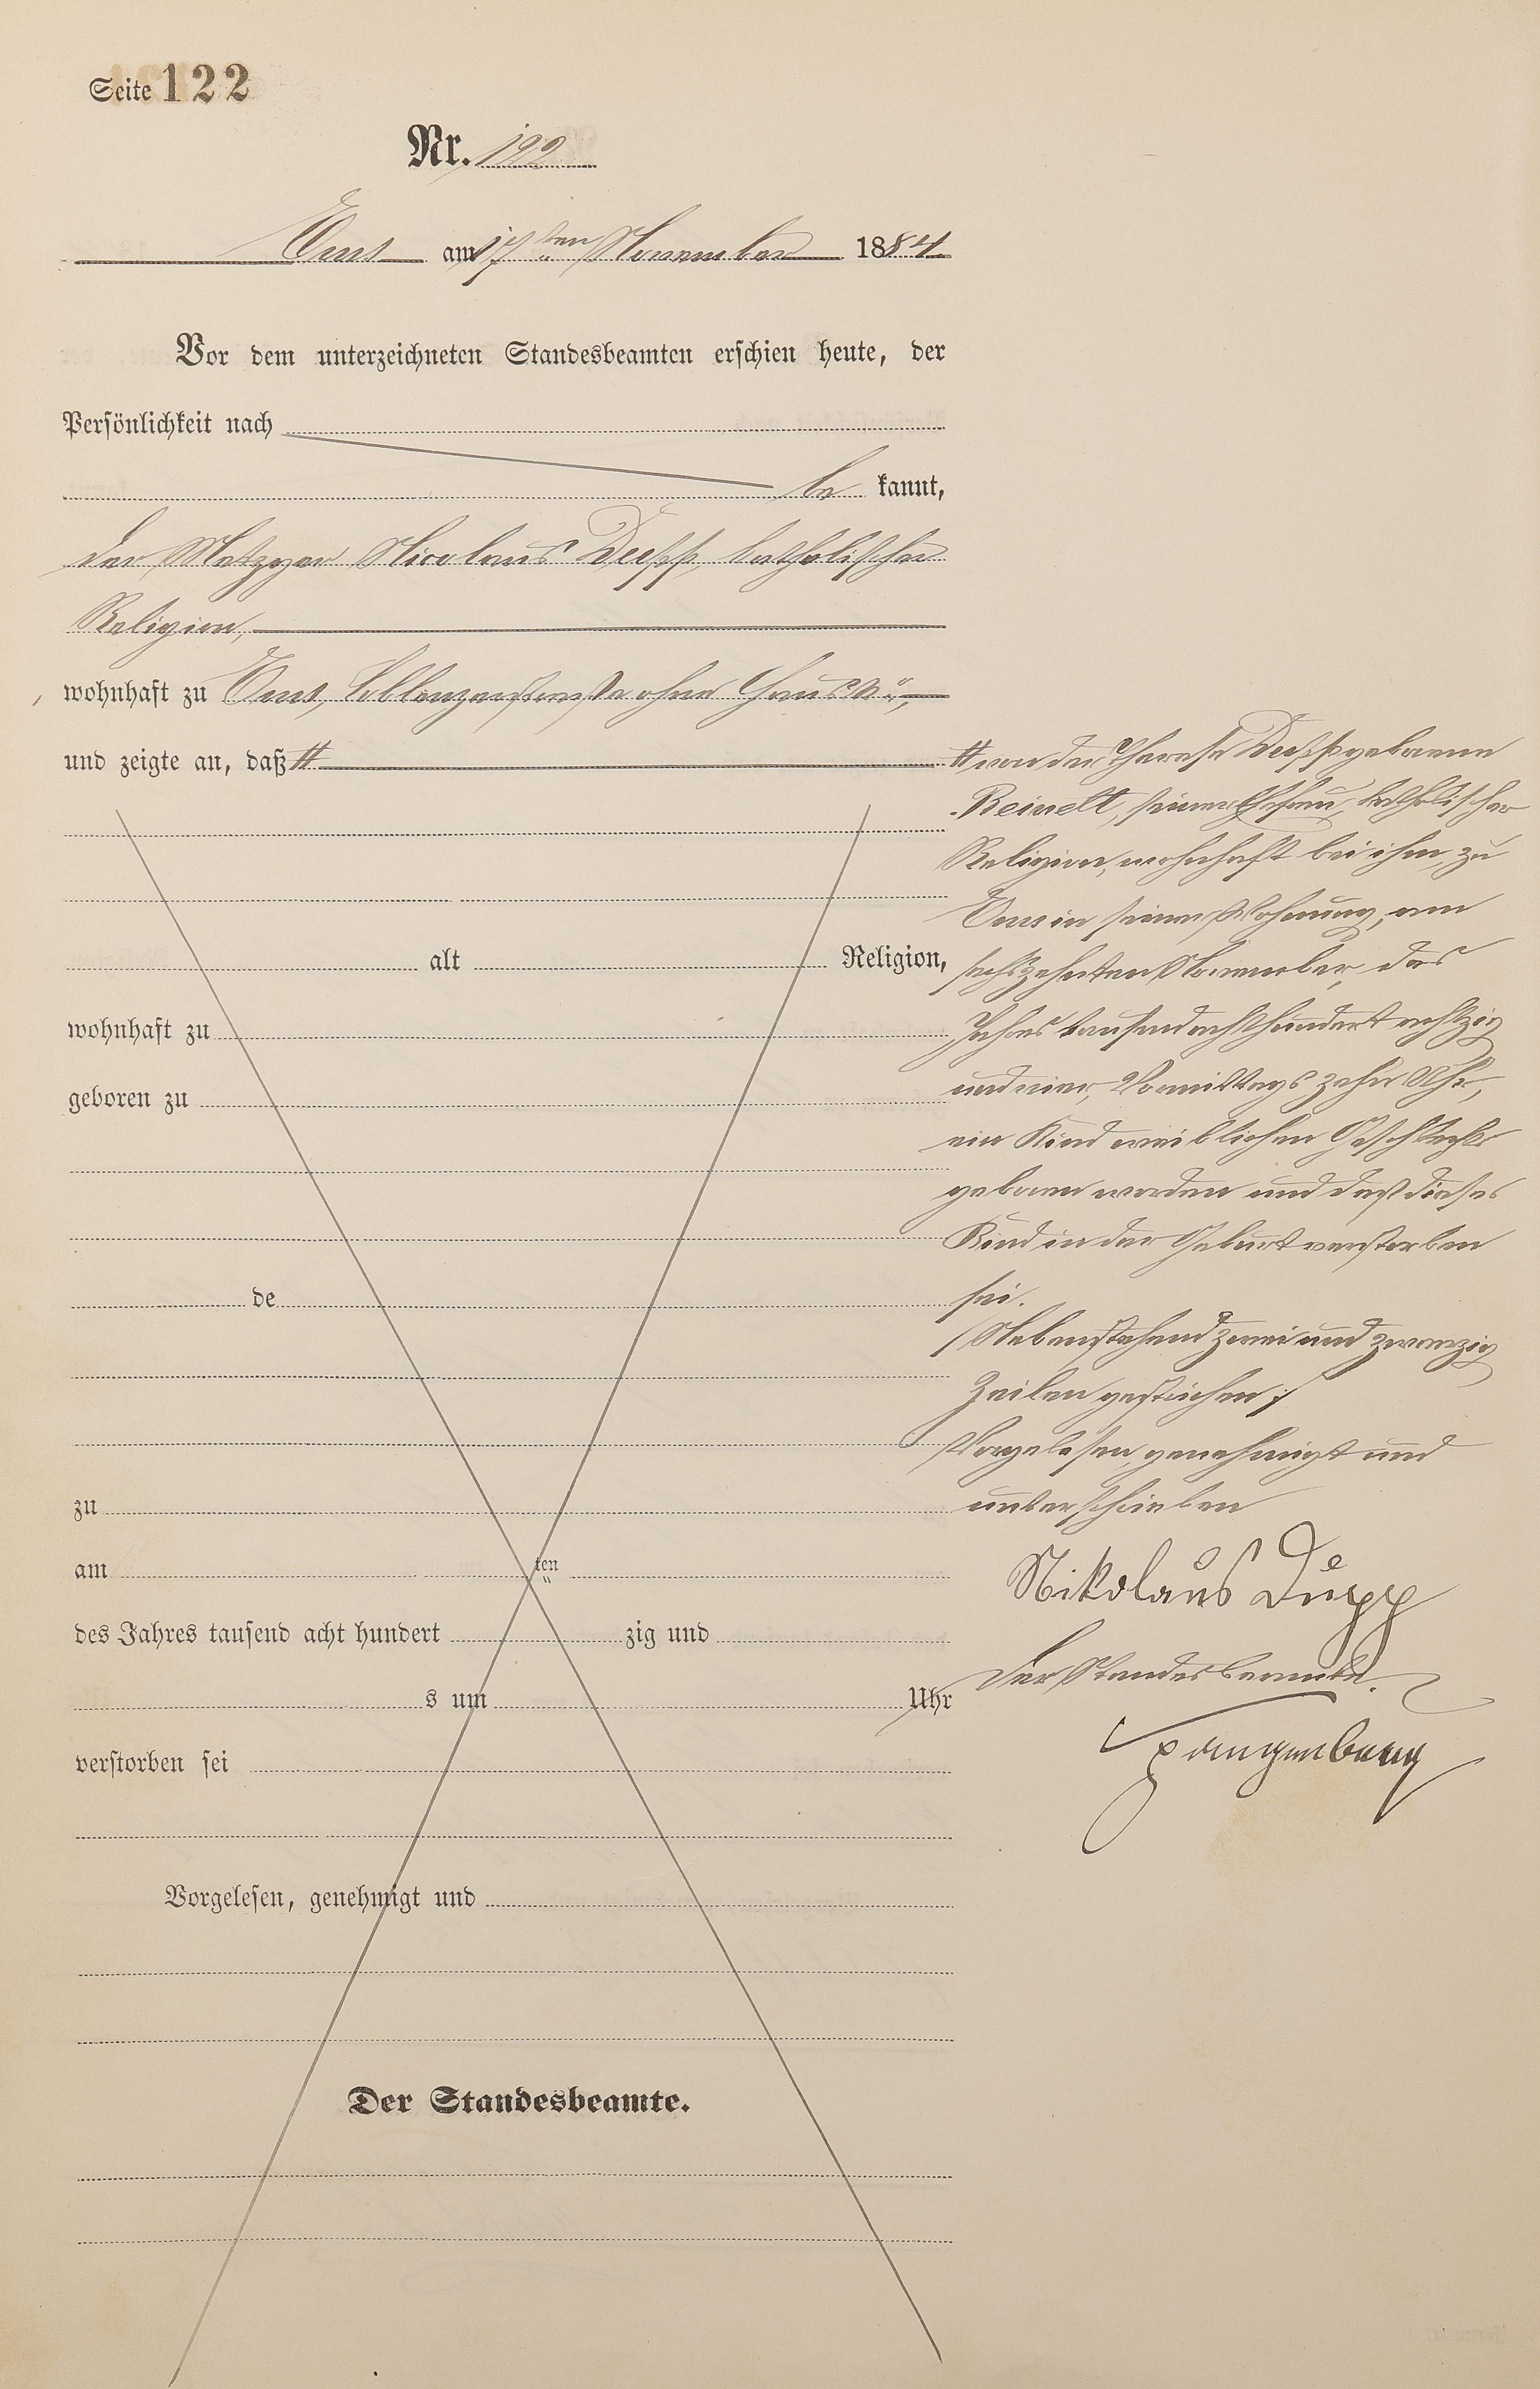 Seite 122
Nr. 122
Ems am 17ten November 1884
Vor dem unterzeichneten Standesbeamten erschien heute, der
Persönlichkeit nach
be kannt,
der Metzger Nicolaus Duepp, katholischer
Religion,
wohnhaft zu Ems, Coblenzerstraße ohne Haus No,
und zeigte an, daß #
# von der Therese Duepp geborenen
Reinelt, seiner Ehefrau, katholischer
Religion, wohnhaft bei ihm, zu
Ems in seiner Wohnung, am
sechszehnten November, des
Jahres tausendachthundert achtzig
und vier, Vormittags zehn Uhr,
ein Kind weiblichen Geschlechts
geboren worden und daß dieses
Kind in der Geburt verstorben
sei.
/Nebenstehend zwei und zwanzig
Zeilen gestrichen/
Vorgelesen, genehmigt und
unterschrieben
Nikolaus Düpp
Der Standesbeamte.
alt Religion,
wohnhaft zu
geboren zu
de
zu
am ten
des Jahres tausend acht hundert zig und
s um Uhr
verstorben sei
Vorgelesen, genehmigt und
Der Standesbeamte.